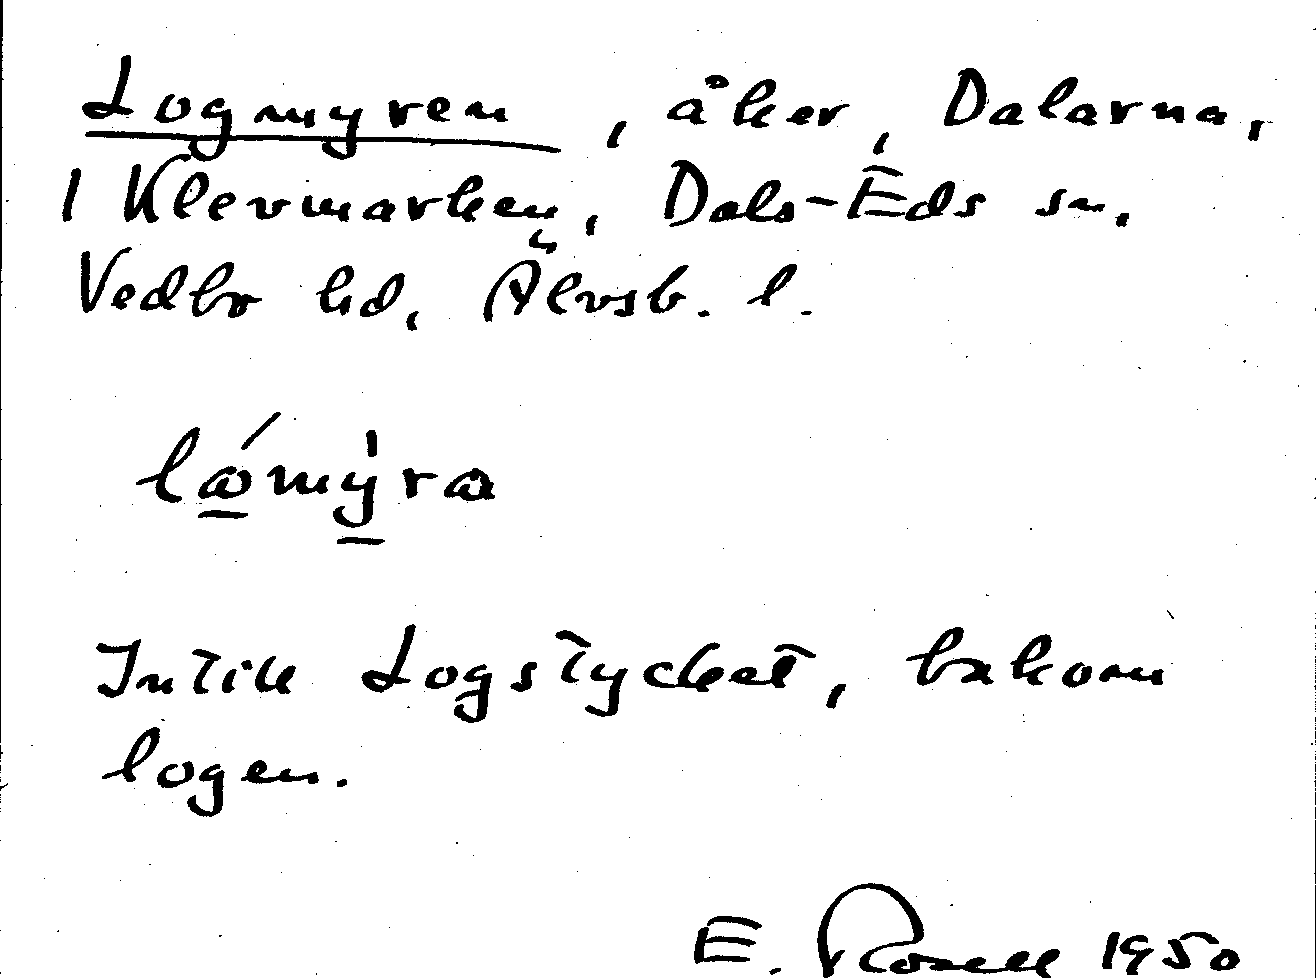 Logmyren, åker, Dalarna,
1 Klevmarken, Dals-Eds sn.
Vedbo hd, Älvsb. l.
lǻmy̍ra
Intill Logstycket, bakom
logen.
E. Rosell 1950